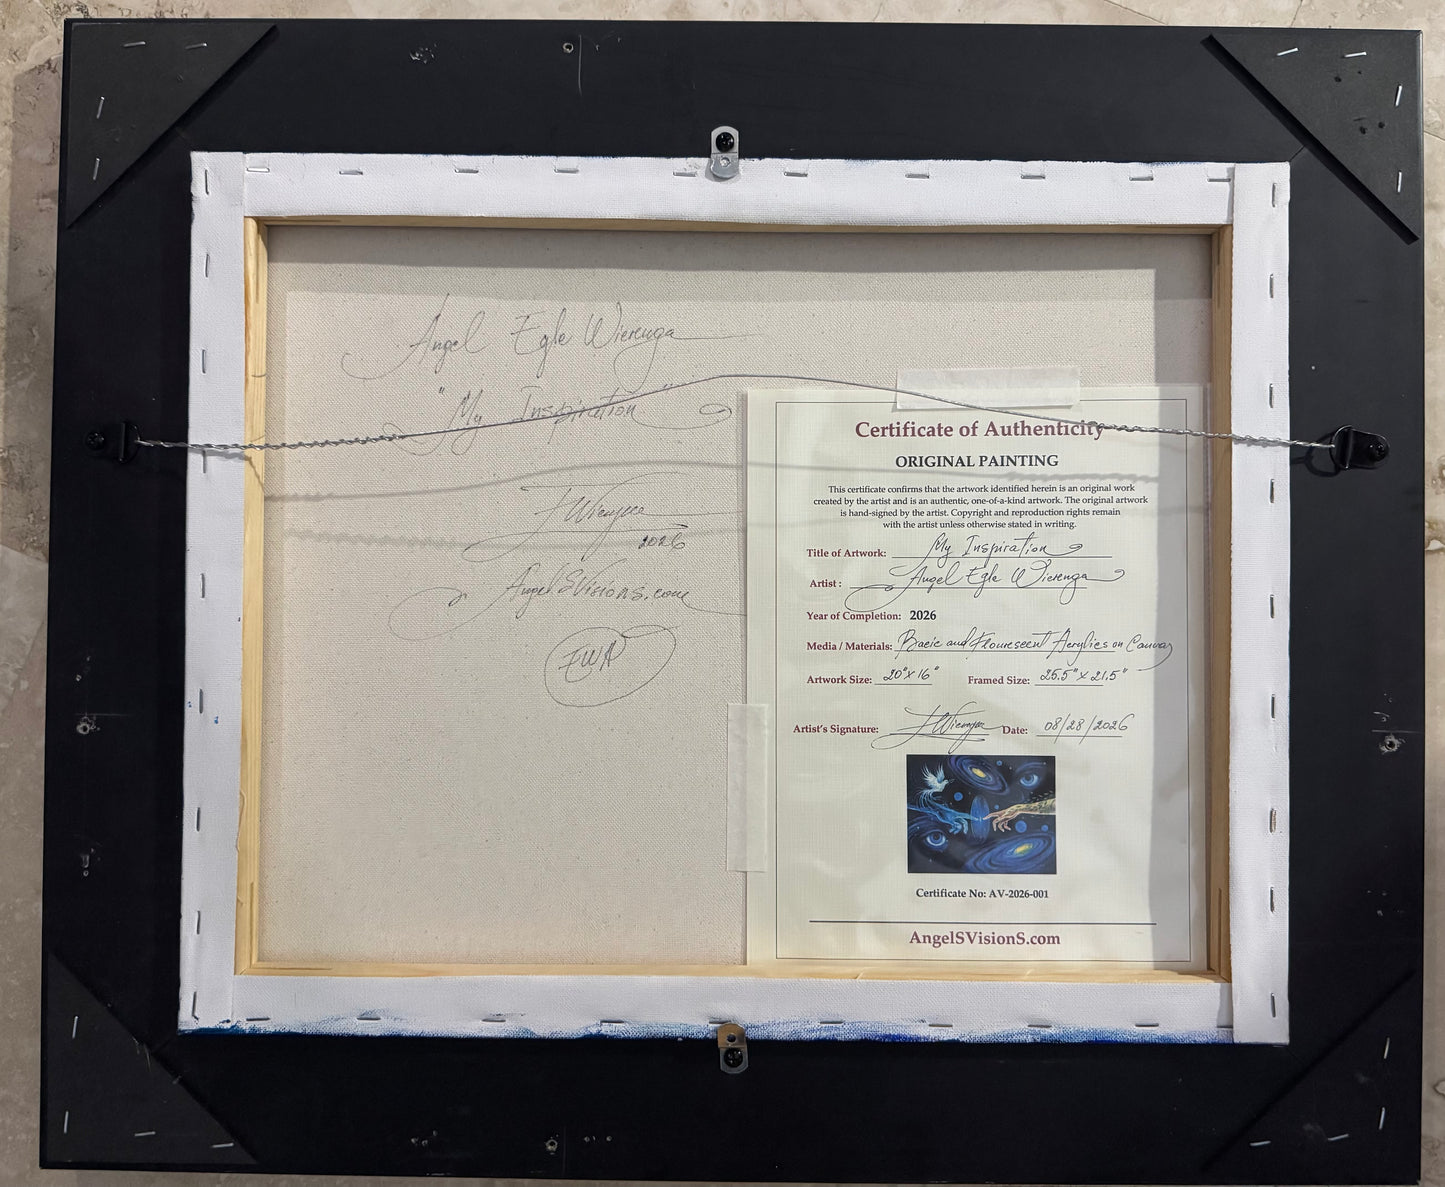 Angel Egle Wierenga
"My Inspiration"
EWierenga
2026
AngelSVisions.com
EWA
Certificate of Authenticity
ORIGINAL PAINTING
This certificate confirms that the artwork identified herein is an original work
created by the artist and is an authentic, one-of-a-kind artwork. The original artwork
is hand-signed by the artist. Copyright and reproduction rights remain
with the artist unless otherwise stated in writing.
Title of Artwork: My Inspiration
Artist : Angel Egle Wierenga
Year of Completion: 2026
Media / Materials: Basic and Flourescent Acrylics on Canvas
Artwork Size: 20"x16" Framed Size: 25.5"x21.5"
Artist's Signature: EWierenga Date: 08/28/2026
Certificate No: AV-2026-001
AngelSVisionS.com